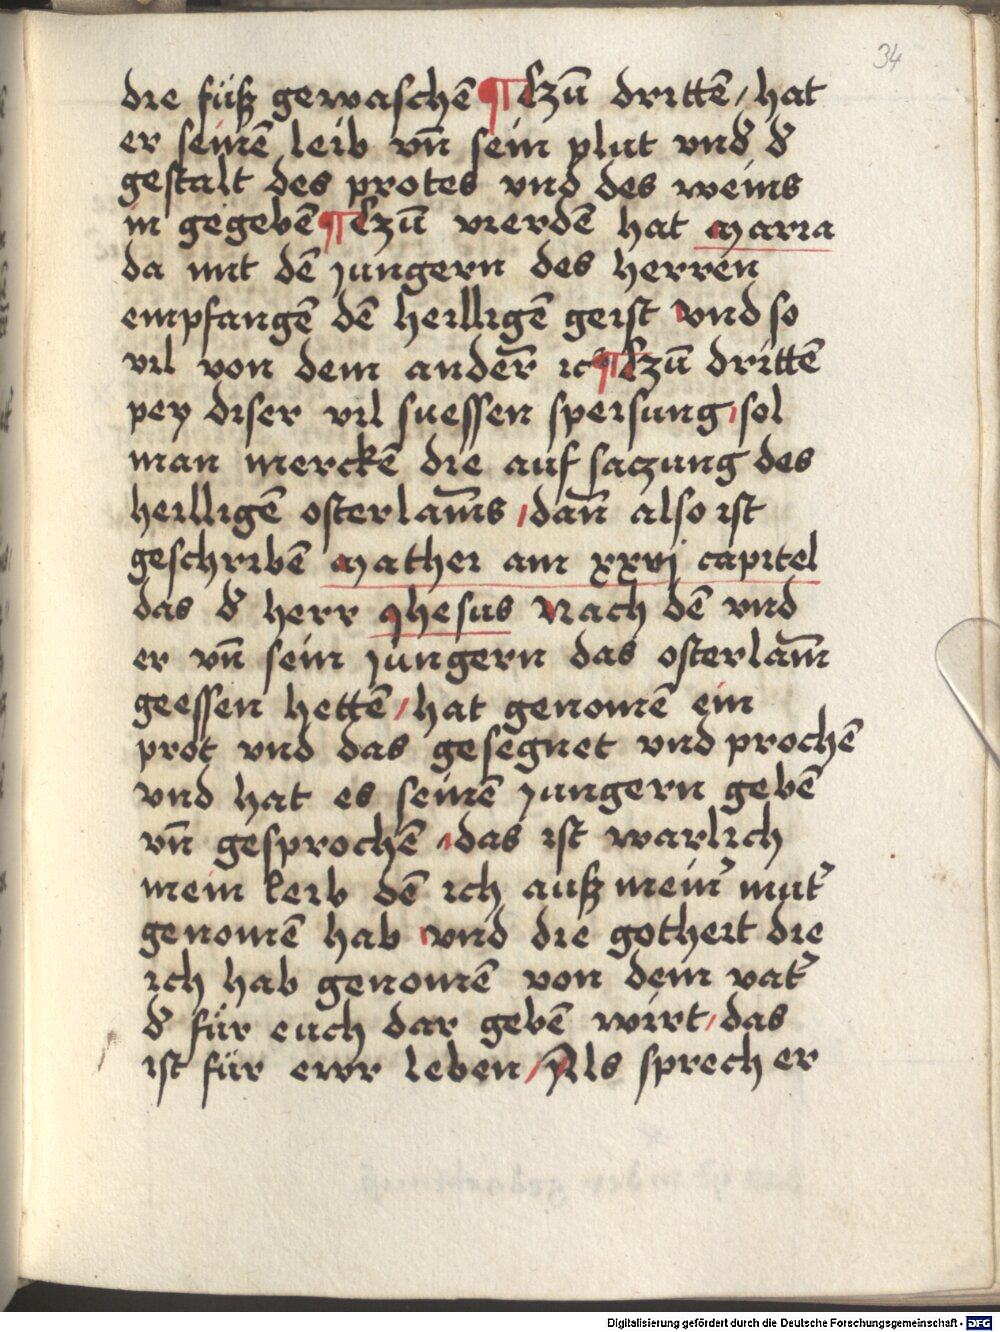 34
die füß gewaschē ¶ Czū drittē / hat
er seinē leib vn̄ sein plut vnd̕ d̕
gestalt des protes vnd des weins
in gegebē ¶ Czū vierdē hat Maria
da mit dē jungern des herren
empfangē dē heilligē geist vnd so
vil von dem ander̄ ich ¶ Czū drittē
pey diser vil suessen speisung / sol
man merckē die auf saczung des
heilligē osterlam̄s / dan̄ also ist
geschribē Mathei am xxvj capitel
das d̕ herr Jhesus Nach dē vnd
er vn̄ sein jungern das osterlam̄
geessen hettē / hat genomē ein
prot vnd das gesegnet vnd prochē
vnd hat es seinē jungern gebē
vn̄ gesprochē / das ist warlich
mein leib dē ich auß mein̕ mut̕
genomē hab vnd die gotheit die
ich hab genomē von dem vat̕
d̕ für euch dar gebē wirt / das
ist für ewr leben / Als sprech er
Digitalisierung gefördert durch die Deutsche Forschungsgemeinschaft - DFG